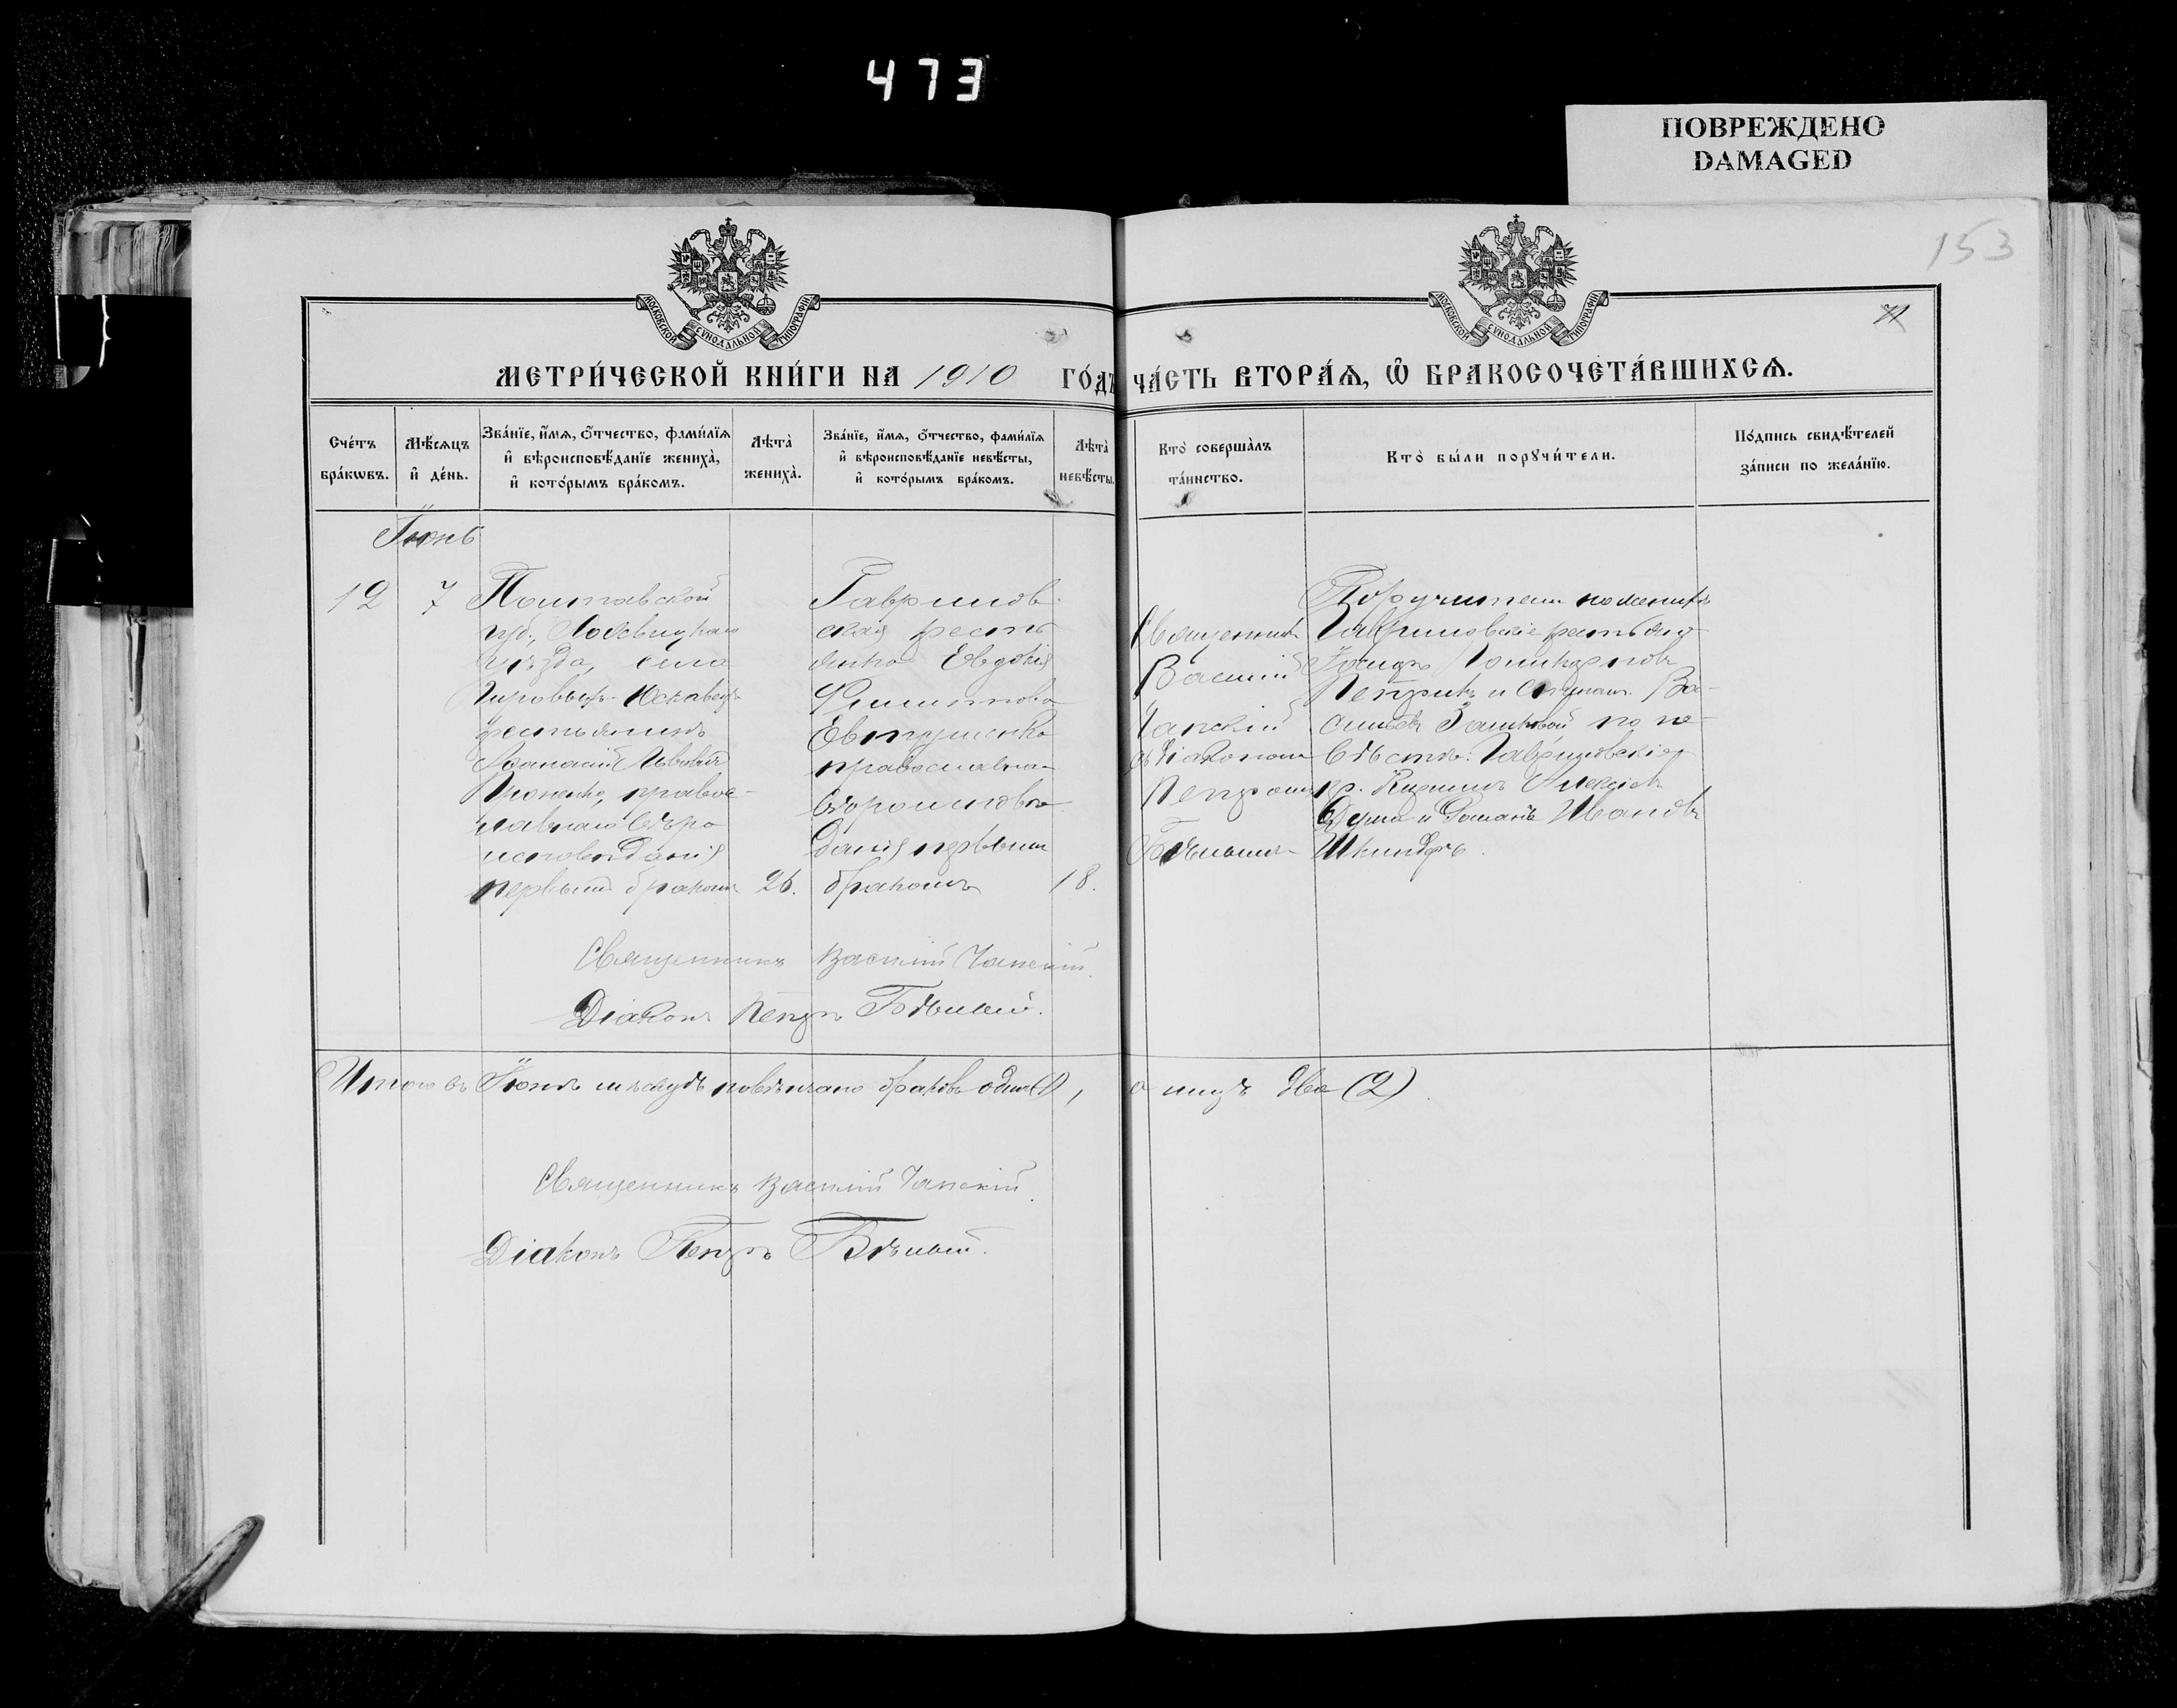 473
ПОВРЕЖДЕНО
DAMAGED
153
МОСКОВСКОЙ СУНОДАЛЬНОЙ ТИПОГРАФІИ
МОСКОВСКОЙ СУНОДАЛЬНОЙ ТИПОГРАФІИ
МЕТРИ́ЧЕСКОЙ КНИ́ГИ НА 1910 ГО́ДЪ ЧА́СТЬ ВТОРА́Ѧ, Ѿ БРАКОСОЧЕТА́ВШИХСѦ.
Сче́тъ бра́кѡвъ.
Мѣ́сѧцъ и҆ де́нь.
Зва́нїе, и҆́мѧ, ѻ҆́тчество, фами́лїѧ и҆ вѣроисповѣ́данїе жениха̀, и҆ кото́рымъ бра́комъ.
Лѣ́та̀ жениха̀.
Зва́нїе, и҆́мѧ, ѻ҆́тчество, фами́лїѧ и҆ вѣроисповѣ́данїе невѣ́сты, и҆ кото́рымъ бра́комъ.
Лѣ́та̀ невѣ́сты.
Кто̀ соверша́лъ та́инство.
Кто̀ бы́ли порꙋчи́тели.
По́дпись свидѣ́телей за́писи по жела́нїю.
Іюнь
12
7
Полтавской
губ., Лохвицкаго
уѣзда, села
крестьянинъ
Аѳанасій Львовичъ
Проненко, правос-
лавнаго вѣро
исповѣданія
первымъ бракомъ
26.
Гаврилов-
ская кресть
янка Евдокія
Филиппова
Евтушенко
православна-
вѣроисповѣ
данія первымъ
бракомъ
18.
Священникъ
Василій
Чапскій
съ діакономъ
Петромъ
Бѣлымъ
Поручители по женихѣ
Гавриловскіе крестьяне
Іосифъ Поликарповъ
Петрикъ и Стефанъ Ва-
сильевъ по не-
вѣстѣ: Гавриловскіе
кр. Кириллъ Алексѣевъ
Дума и Романъ Ивановъ
Шкиндеръ.
Священникъ Василій Чапскій.
Діаконъ Петръ Бѣлый.
Итого въ Іюнѣ мѣсяцѣ повѣнчано браковъ одинъ (1), а лицъ два (2).
Священникъ Василій Чапскій.
Діаконъ Петръ Бѣлый.